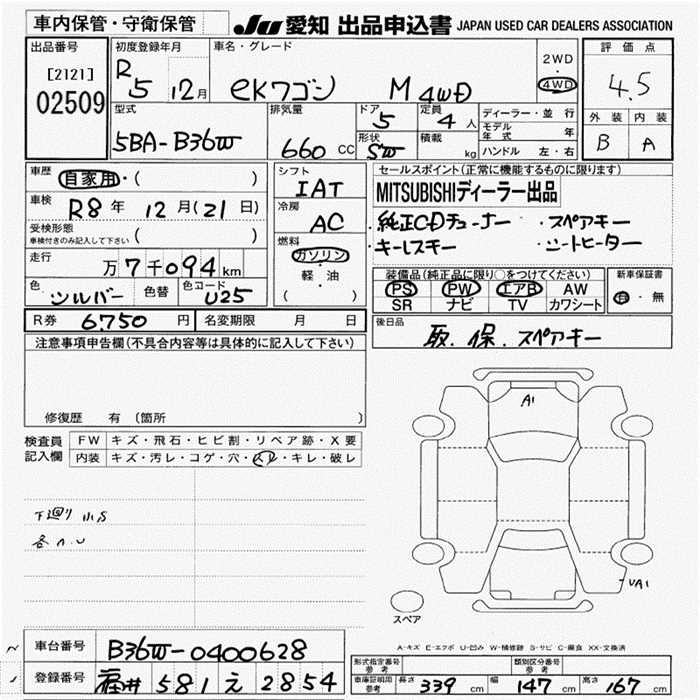 車内保管・守衛保管
JU 愛知 出品申込書 JAPAN USED CAR DEALERS ASSOCIATION
出品番号 初度登録年月 車名・グレード 評価点
[2121]
02509
R5 12月 eKワゴン M 4WD
2WD
4WD
4.5
型式 排気量 ドア 定員 ディーラー・並行 外装 内装
5BA-B36W 660 CC 5 4人 B A
モデル年式 年
形状 積載
SW kg ハンドル 左・右
車歴 自家用・( )
車検 R8年 12月(21日)
受検形態
車検付きのみ記入して下さい ( )
走行 万7千094km
色 シルバー 色替 色コード U25
シフト
IAT
冷房
AC
燃料
ガソリン
軽・油
( )
セールスポイント(正常に機能するものに限ります)
MITSUBISHIディーラー出品
・純正CDチューナー ・スペアキー
・キーレスキー ・シートヒーター
装備品(純正品に限り○をつけてください) 新車保証書
PS PW エアB AW 有・無
SR ナビ TV カワシート
R券 6.750円 名変期限 月 日
後日品
取.保.スペアキー
注意事項申告欄(不具合内容等は具体的に記入して下さい)
修復歴 有 (箇所 )
検査員
記入欄
FW キズ・飛石・ヒビ割・リペア跡・X要
内装 キズ・汚レ・コゲ・穴・スレ・キレ・破レ
下廻り 小S
各A.U
A1
UA1
スペア
A-キズ E-エクボ U-凹み W-補修跡 S-サビ C-腐食 XX-交換済
車台番号 B36W-0400628
登録番号 福井 581 え 2854
形式指定番号 参考 類別区分番号 参考
車庫証明用 参考 長さ 339cm 幅 147cm 高さ 167cm